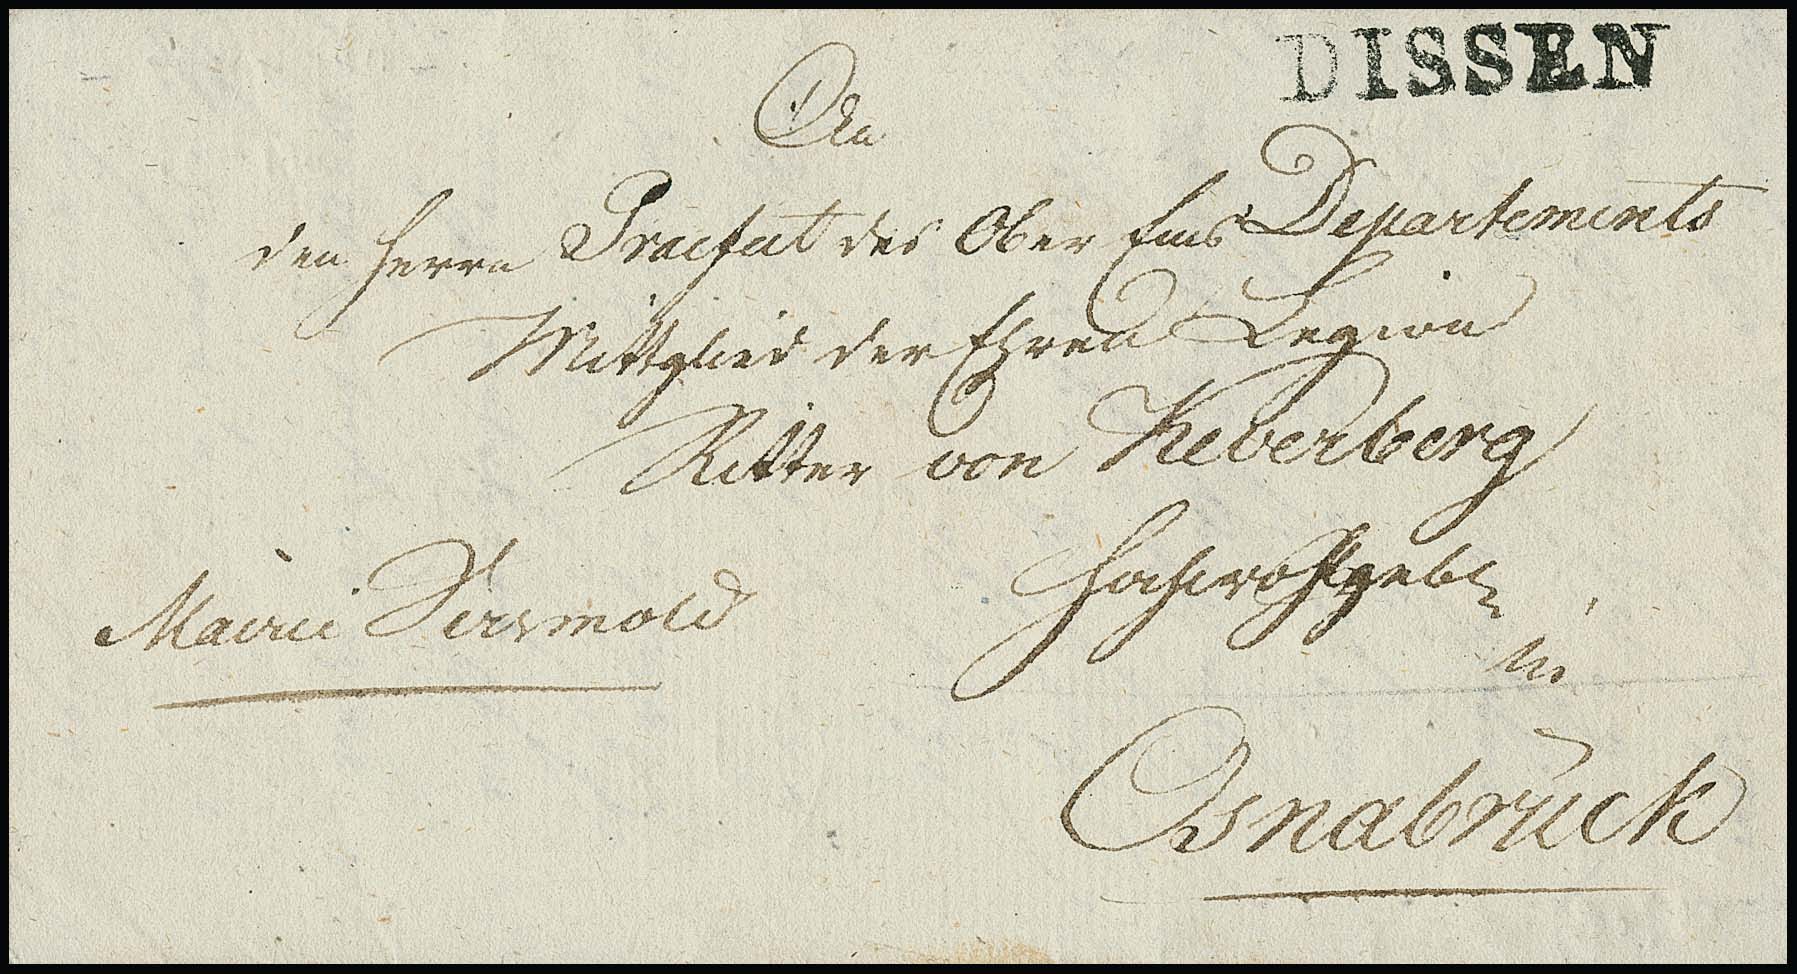 DISSEN
An
den Herrn Praefect des Ober Ems Departements
Mittglied der Ehren Legion
Ritter von Keverberg
Hochwohlgebr
in
Mairie Versmold
Osnabrück